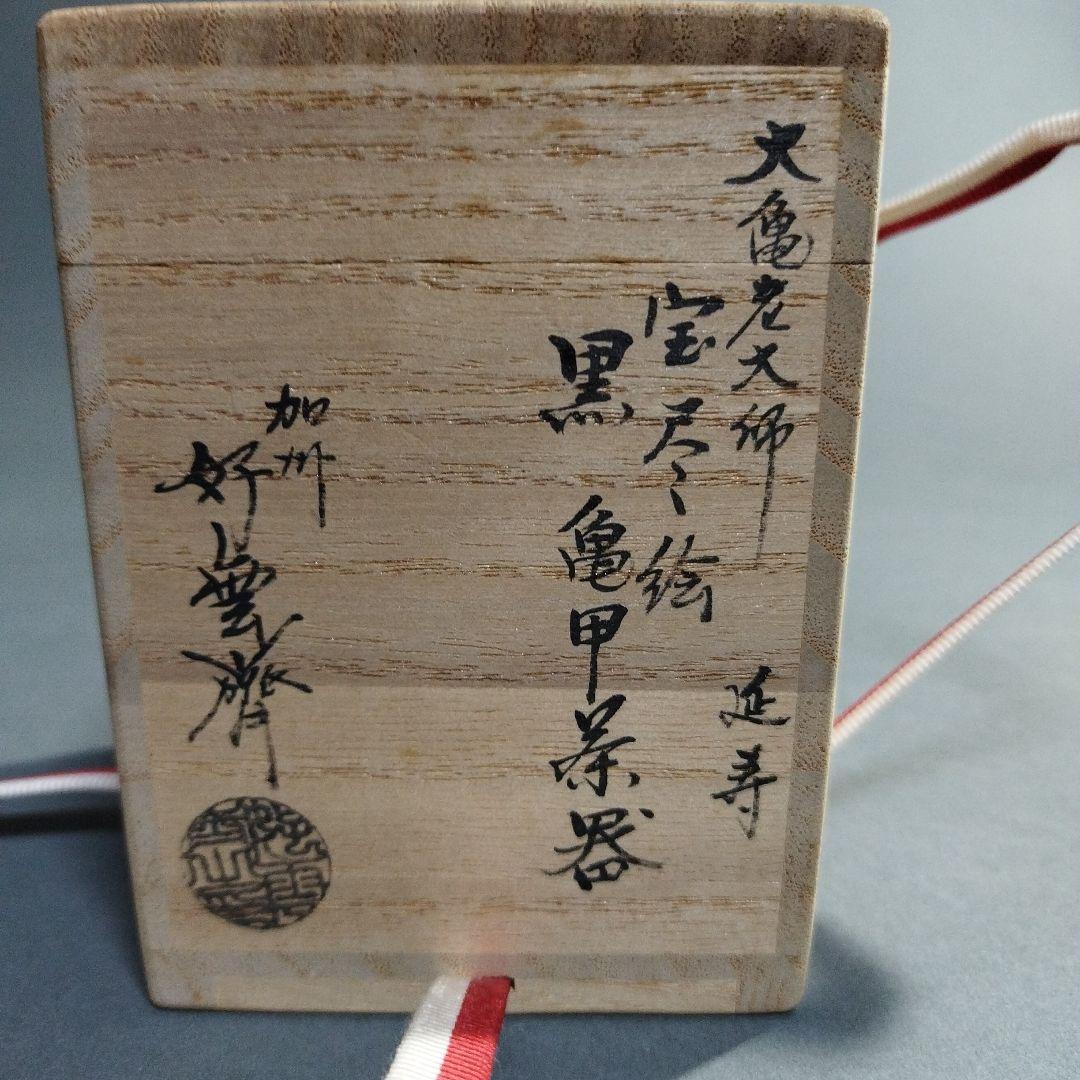 大亀老大師 延寿
宝尽絵
黒亀甲茶器
加州
好雲齋